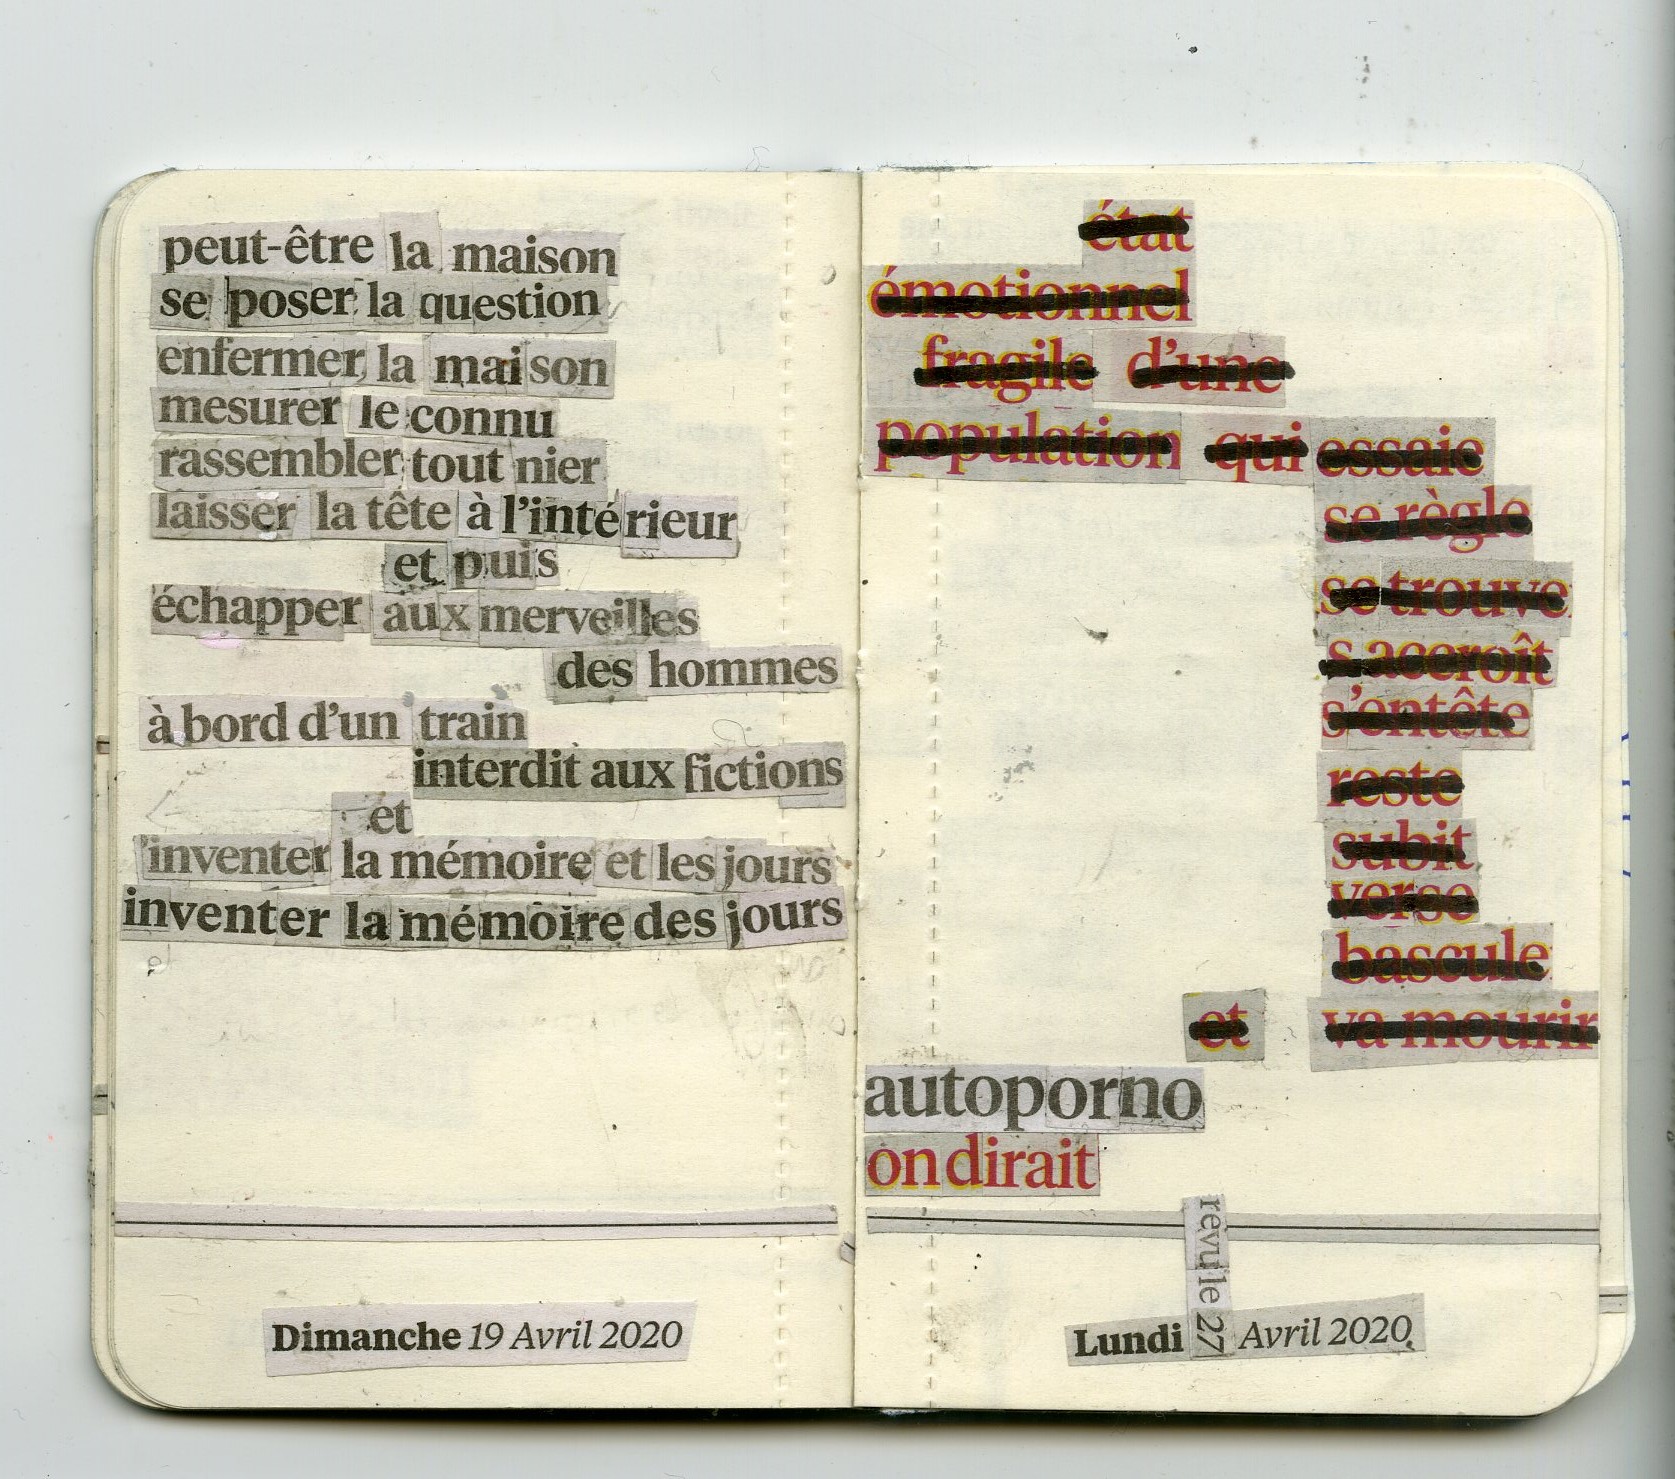 peut-être la maison
se poser la question
enfermer la maison
mesurer le connu
rassembler tout nier
laisser la tête à l'intérieur
et puis
échapper aux merveilles
des hommes
à bord d'un train
interdit aux fictions
et
inventer la mémoire et les jours
inventer la mémoire des jours
Dimanche 19 Avril 2020
état
émotionnel
fragile d'une
population qui essaie
se règle
se trouve
s accroît
s'entête
reste
subit
verse
bascule
et va mourir
autoporno
on dirait
revu le 27
Lundi Avril 2020